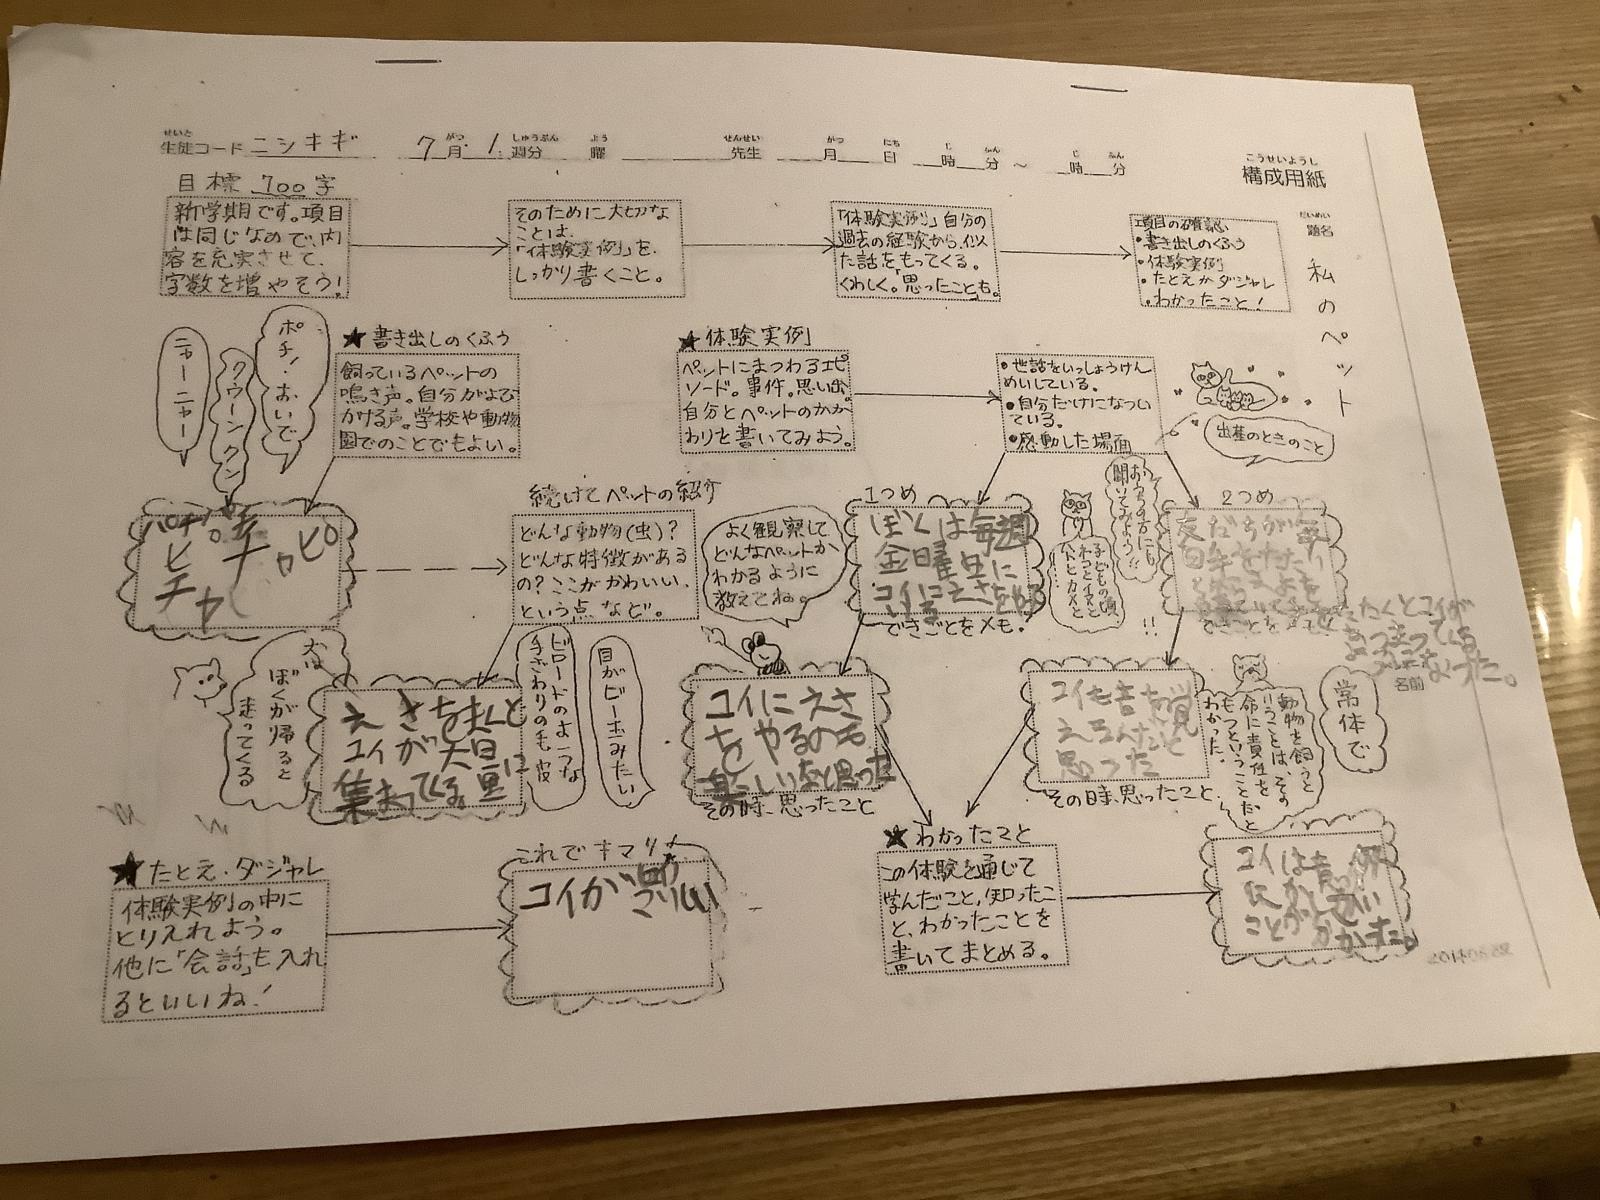 せいと
生徒コード ニシキギ 7月.1週分 曜 先生 月 日 時 分 ～ 時 分
こうせいようし
構成用紙
だいめい
題名
私のペット
目標 700字
新学期です。項目
は同じなので、内
容を充実させて、
字数を増やそう!
そのために大切な
ことは、
「体験実例」を、
しっかり書くこと。
「体験実例」自分の
過去の経験から、似
た話をもってくる。
くわしく。「思ったこと」も。
項目の確認
・書き出しのくふう
・体験実例
・たとえかダジャレ
・わかったこと!
ニャーニャー
クウーンクン
ポチ!おいで
★書き出しのくふう
飼っているペットの
鳴き声。自分がよび
かける声。学校や動物
園でのことでもよい。
★体験実例
ペットにまつわるエピ
ソード。事件。思い出。
自分とペットのかか
わりを書いてみよう。
・世話をいっしょうけん
めいしている。
・自分だけになつい
ている。
・感動した場面
出産のときのこと
続けてペットの紹介
どんな動物(虫)?
どんな特徴がある
の?ここがかわいい、
という点、など。
よく観察して
どんなペットか
わかるように
教えてね。
1つめ
ぼくは毎週
金曜日に
コイにえさをやる
できごとをメモ!
お家の方にも
聞いてみよう!!
子どもの頃、
ネコとイヌと
ヘビとカメと
2つめ
友だちが
できごとをメモ!
!!
犬は
ぼくが帰ると
走ってくる
えさをまくと
コイが大量に
集まってくる。
ビロードのような
手ざわりの毛皮
目がビー玉みたい
コイにえさ
をやるのも
楽しいな、と思った
その時、思ったこと
コイも音を覚
えるんだなと
思った
その時、思ったこと
動物を飼うと
いうことは、その
命に責任を
もつということだと
わかった。
常体で
名前
★たとえ・ダジャレ
体験実例の中に
とりいれよう。
他に「会話」も入れ
るといいね!
これでキマリ!
コイが
★わかったこと
この体験を通じて
学んだこと、知ったこ
と、わかったことを
書いてまとめる。
コイは
ことがわかった。